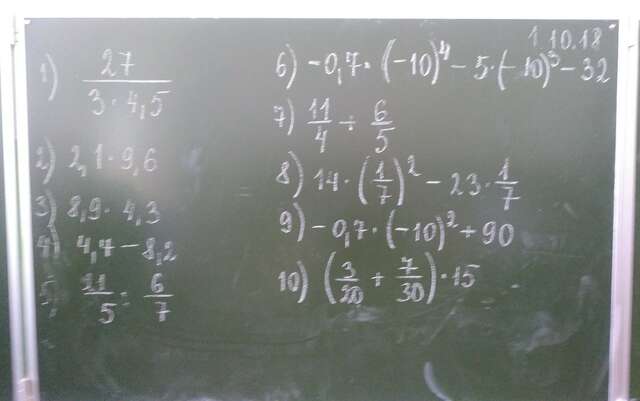 1) 27 / (3 · 4,5)
2) 2,1 · 9,6
3) 8,9 · 4,3
4) 4,4 − 8,2
5) 21/5 : 6/7
1.10.18
6) −0,7 · (−10)⁴ − 5 · (−10)³ − 32
7) 11/4 ÷ 6/5
8) 14 · (1/7)² − 23 · 1/7
9) −0,7 · (−10)² + 90
10) (3/20 + 7/30) · 15